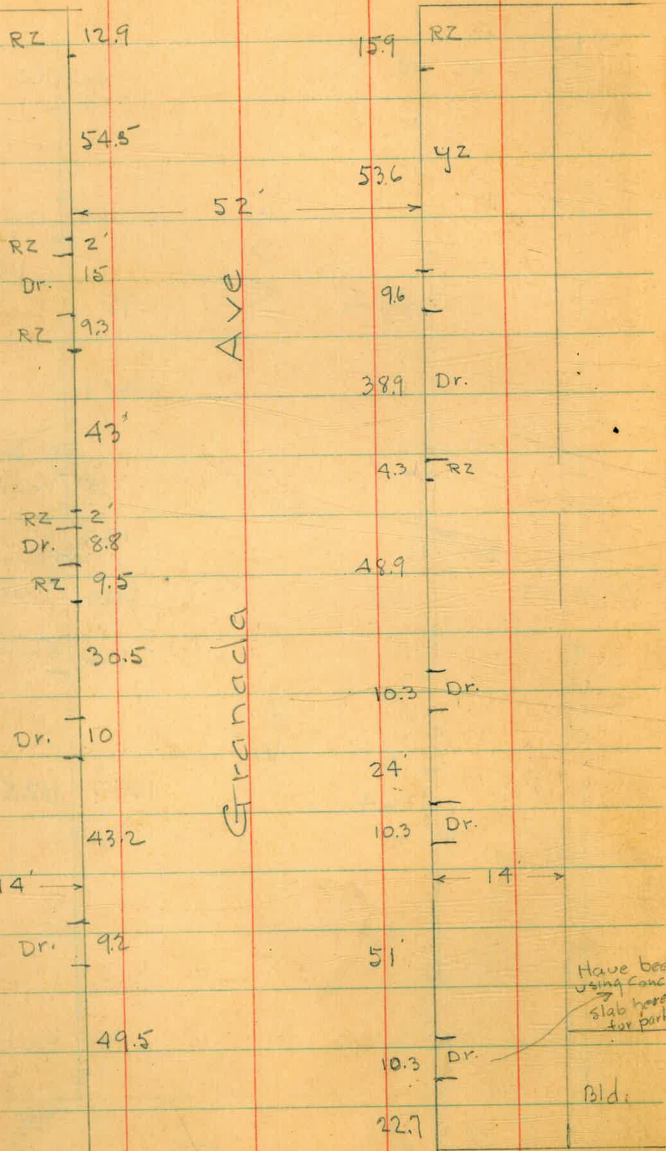 RZ 12.9
54.5
RZ 2'
Dr. 15
RZ 9.3
43'
RZ 2'
Dr. 8.8
RZ 9.5
30.5
Dr. 10
43.2
14'
Dr. 9.2
49.5
52'
Granada Ave
15.9 RZ
53.6 YZ
9.6
38.9 Dr.
4.3 RZ
48.9
10.3 Dr.
24'
10.3 Dr.
14'
51'
10.3 Dr.
22.7
Have
using
slab here
for
Bld.